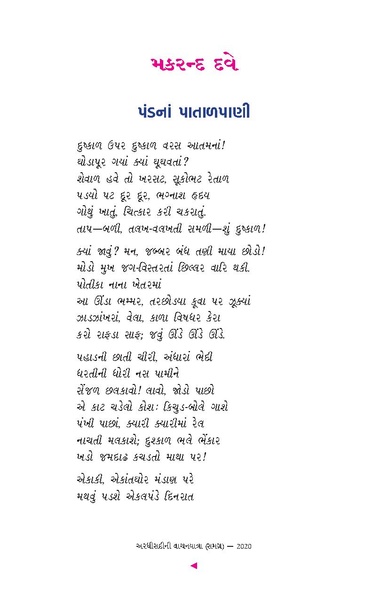 મકરન્દ દવે
પંડનાં પાતાળપાણી
દુષ્કાળ ઉપર દુષ્કાળ વરસ આતમનાં!
ઘોડાપૂર ગયાં ક્યાં ઘૂઘવતાં?
શેવાળ હવે તો ખરસટ, સૂકોભટ રેતાળ
પડ્યો પટ દૂર દૂર, ભગ્નાશ હૃદય
ગોથું ખાતું, ચિત્કાર કરી ચકરાતું.
તાપ—બળી, તલખ-વલખતી સમળી—શું દુષ્કાળ!
ક્યાં જાવું? મન, જબ્બર બંધ તણી માયા છોડો!
મોડો મુખ જગ-વિસ્તરતાં છિલ્લર વારિ થકી.
પોતીકા નાના ખેતરમાં
આ ઊંડા ભમ્મર, તરછોડવા કૂવા પર ઝૂક્યાં
ઝાડઝાંખરાં, વેલા, કાળા વિષધર કેરા
કરો રાફડા સાફ; જવું ઊંડે ઊંડે ઊંડે.
પહાડની છાતી ચીરી, અંધારાં ભેદી
ધરતીની ધોરી નસ પામીને
સેંજળ છલકાવો! લાવો, જોડો પાછો
એ કાટ ચડેલો કોશ: કિચુડ-બોલે ગાશે
પંખી પાછાં, ક્યારી ક્યારીમાં રેલ
નાચતી મલકાશે; દુશ્કાળ ભલે ભેંકાર
ખડો જમદાઢ કચડતો માથા પર!
એકાકી, એકાંતઘોર મંડાણ પરે
મથવું પડશે એકલપંડે દિનરાત
અરધીસદીની વાચનયાત્રા (સમગ્ર) — 2020